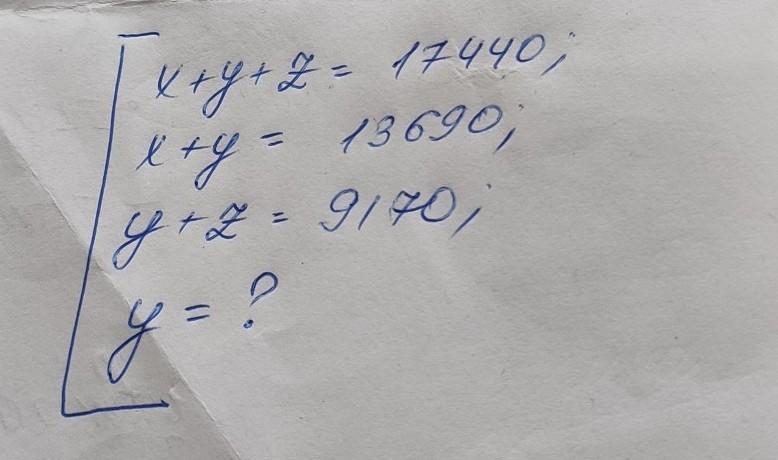 x+y+z = 17440;
x+y = 13690;
y+z = 9170;
y = ?